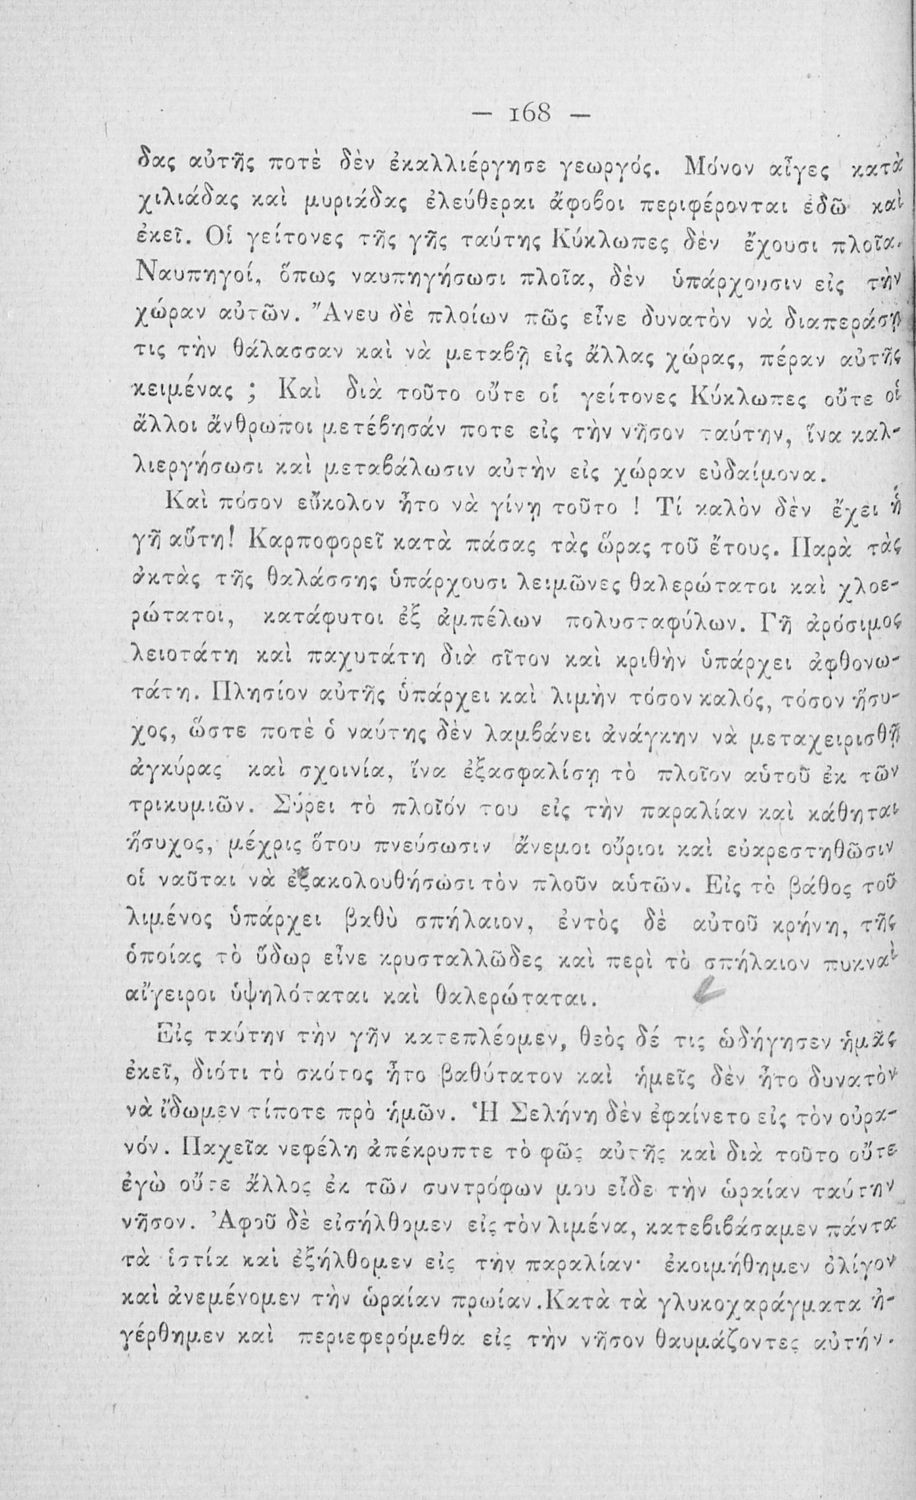 — 168 —
δας αὐτῆς ποτὲ δὲν ἐκαλλιέργησε γεωργός. Μόνον αἶγες κατὰ
χιλιάδας καὶ μυριάδας ἐλεύθεραι ἄφοβοι περιφέρονται ἐδῶ καὶ
ἐκεῖ. Οἱ γείτονες τῆς γῆς ταύτης Κύκλωπες δὲν ἔχουσι πλοῖα.
Ναυπηγοί, ὅπως ναυπηγήσωσι πλοῖα, δὲν ὑπάρχουσιν εἰς τὴν
χώραν αὐτῶν. Ἄνευ δὲ πλοίων πῶς εἶνε δυνατὸν νὰ διαπεράσῃ
τις τὴν θάλασσαν καὶ νὰ μεταβῇ εἰς ἄλλας χώρας, πέραν αὐτῆς
κειμένας ; Καὶ διὰ τοῦτο οὔτε οἱ γείτονες Κύκλωπες οὔτε οἱ
ἄλλοι ἄνθρωποι μετέβησάν ποτε εἰς τὴν νῆσον ταύτην, ἵνα καλ-
λιεργήσωσι καὶ μεταβάλωσιν αὐτὴν εἰς χώραν εὐδαίμονα.
Καὶ πόσον εὔκολον ἦτο νὰ γίνῃ τοῦτο ! Τί καλὸν δὲν ἔχει ἡ
γῆ αὕτη! Καρποφορεῖ κατὰ πάσας τὰς ὥρας τοῦ ἔτους. Παρὰ τὰς
ἀκτὰς τῆς θαλάσσης ὑπάρχουσι λειμῶνες θαλερώτατοι καὶ χλοε-
ρώτατοι, κατάφυτοι ἐξ ἀμπέλων πολυσταφύλων. Γῆ ἀρόσιμος
λειοτάτη καὶ παχυτάτη διὰ σῖτον καὶ κριθὴν ὑπάρχει ἀφθονω-
τάτη. Πλησίον αὐτῆς ὑπάρχει καὶ λιμὴν τόσον καλός, τόσον ἥσυ-
χος, ὥστε ποτὲ ὁ ναύτης δὲν λαμβάνει ἀνάγκην νὰ μεταχειρισθῇ
ἀγκύρας καὶ σχοινία, ἵνα ἐξασφαλίσῃ τὸ πλοῖον αὑτοῦ ἐκ τῶν
τρικυμιῶν. Σύρει τὸ πλοῖόν του εἰς τὴν παραλίαν καὶ κάθηται
ἥσυχος, μέχρις ὅτου πνεύσωσιν ἄνεμοι οὔριοι καὶ εὐαρεστηθῶσιν
οἱ ναῦται νὰ ἐξακολουθήσωσι τὸν πλοῦν αὑτῶν. Εἰς τὸ βάθος τοῦ
λιμένος ὑπάρχει βαθὺ σπήλαιον, ἐντὸς δὲ αὐτοῦ κρήνη, τῆς
ὁποίας τὸ ὕδωρ εἶνε κρυσταλλῶδες καὶ περὶ τὸ σπήλαιον πυκναὶ
αἴγειροι ὑψηλόταται καὶ θαλερώταται.
Εἰς ταύτην τὴν γῆν κατεπλέομεν, θεὸς δέ τις ὡδήγησεν ἡμᾶς
ἐκεῖ, διότι τὸ σκότος ἦτο βαθύτατον καὶ ἡμεῖς δὲν ἦτο δυνατὸν
νὰ ἴδωμεν τίποτε πρὸ ἡμῶν. Ἡ Σελήνη δὲν ἐφαίνετο εἰς τὸν οὐρα-
νόν. Παχεῖα νεφέλη ἀπέκρυπτε τὸ φῶς αὐτῆς καὶ διὰ τοῦτο οὔτε
ἐγὼ οὔτε ἄλλος ἐκ τῶν συντρόφων μου εἶδε τὴν ὡραίαν ταύτην
νῆσον. Ἀφοῦ δὲ εἰσήλθομεν εἰς τὸν λιμένα, κατεβιβάσαμεν πάντα
τὰ ἱστία καὶ ἐξήλθομεν εἰς τὴν παραλίαν· ἐκοιμήθημεν ὀλίγον
καὶ ἀνεμένομεν τὴν ὡραίαν πρωίαν. Κατὰ τὰ γλυκοχαράγματα ἠ-
γέρθημεν καὶ περιεφερόμεθα εἰς τὴν νῆσον θαυμάζοντες αὐτήν.